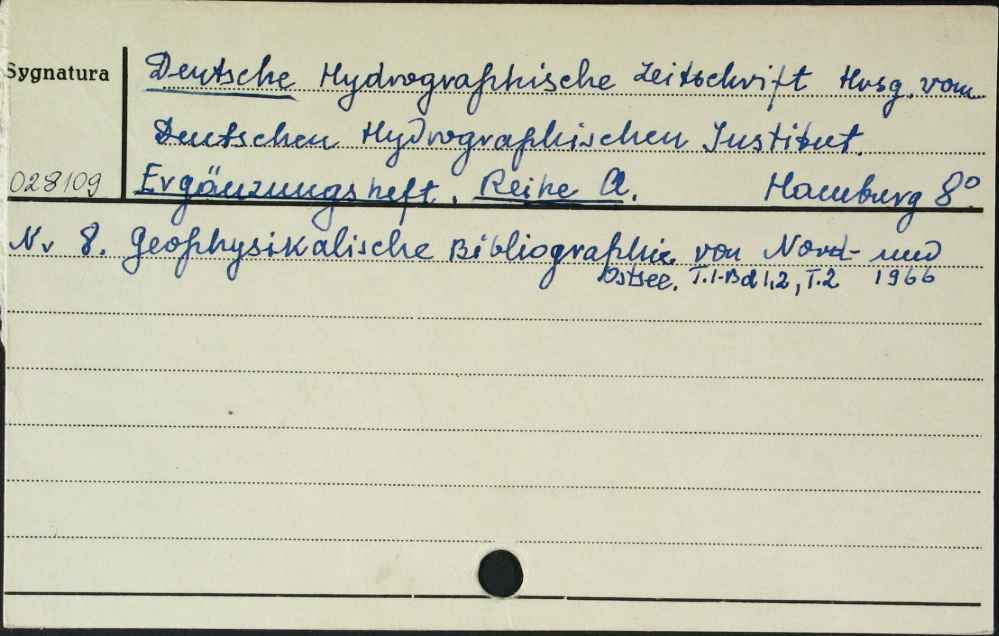 Sygnatura
Deutsche Hydrographische Zeitschrift Hrsg. vom
Deutschen Hydrographischen Institut.
028109 Ergänzungsheft. Reihe A. Hamburg 8°
Nr 8. Geophysikalische Bibliographie von Nord- und
Ostsee. T.1-Bd 1,2, T.2 1966